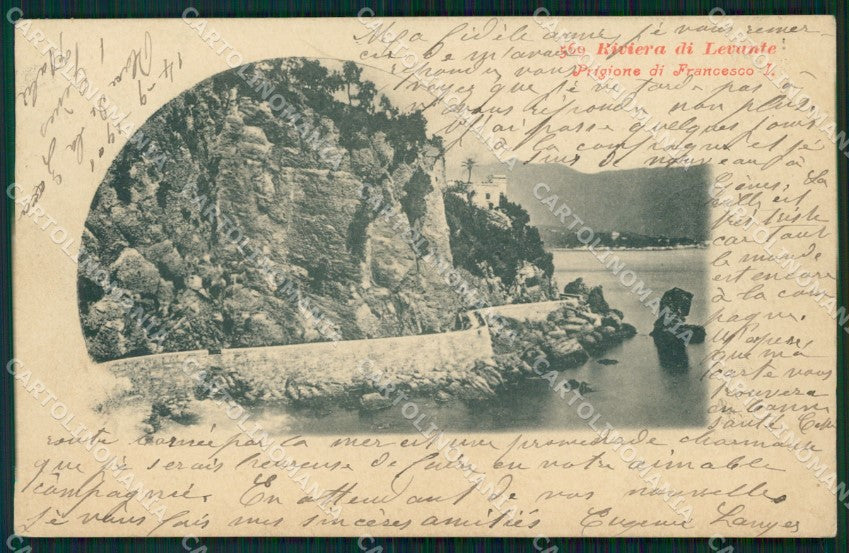 14-9-1901
569 Riviera di Levante
Prigione di Francesco I.
Ma fidèle amie, je vous remer
cie de m'avoir
répondu vous
voyez que je ne tarde pas à
vous répondre non plus
J'ai passé quelques jours
à la campagne et je
suis de nouveau à
Gênes, la
ville est
triste
car tout
le monde
est encore
à la cam
pagne.
J'espère
que ma
carte vous
trouvera
en bonne
santé Cette
route bornée par la mer est une promenade charmante
que je serais heureuse de faire en votre aimable
compagnie. En attendant de vos nouvelles
je vous fais mes sincères amitiés Eugénie
CARTOLINOMANIA.COM